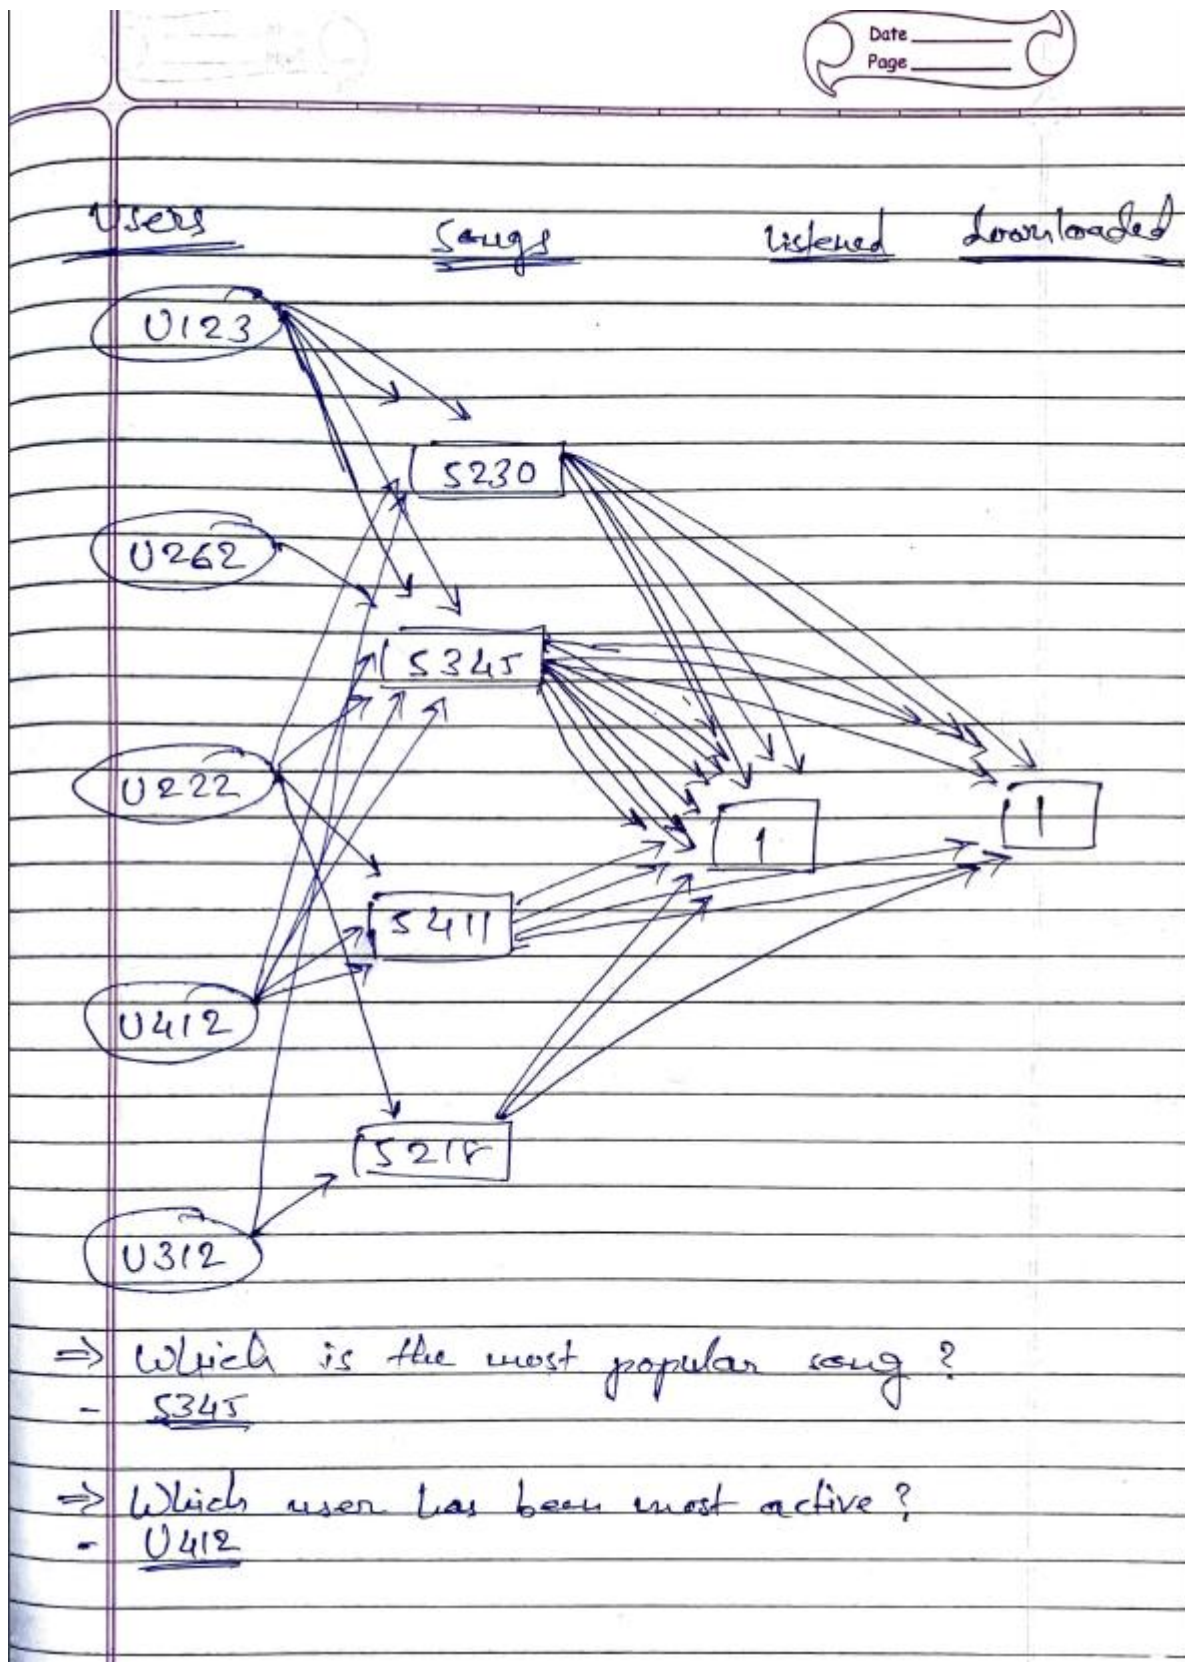 Date
Page
Users Songs listened downloaded
U123
S230
U262
S345
U222
1
1
S411
U412
S218
U312
⇒ Which is the most popular song ?
- S345
⇒ Which user has been most active ?
- U412